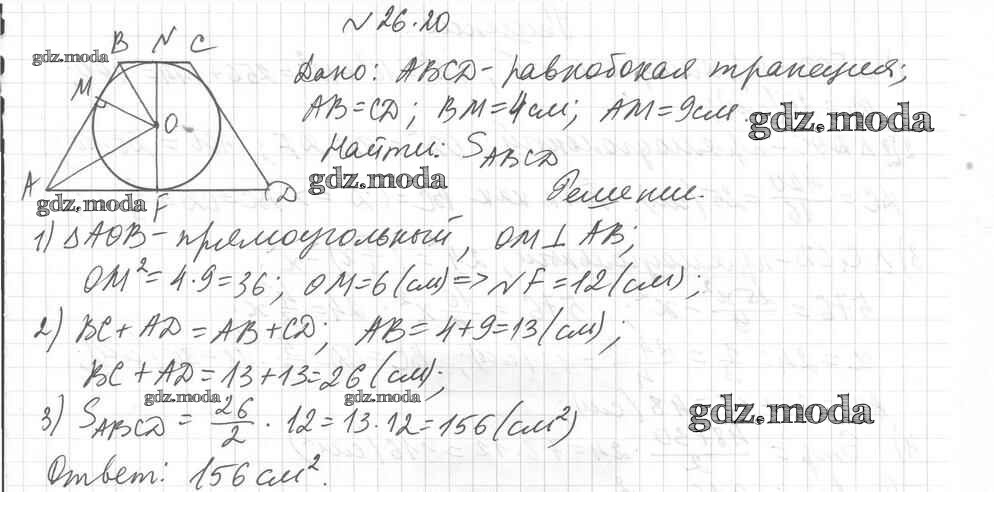 N 26.20
B N C
gdz.moda
M
O
A D
gdz.moda
F
Дано: ABCD - равнобокая трапеция;
AB = CD; BM = 4 см; AM = 9 см.
gdz.moda
Найти: S_ABCD
gdz.moda
Решение.
1) △AOB - прямоугольный, OM ⊥ AB;
OM² = 4·9 = 36; OM = 6 (см) => NF = 12 (см);
2) BC + AD = AB + CD; AB = 4 + 9 = 13 (см);
BC + AD = 13 + 13 = 26 (см);
gdz.moda gdz.moda
3) S_ABCD = 26/2 · 12 = 13·12 = 156 (см²)
gdz.moda
Ответ: 156 см².